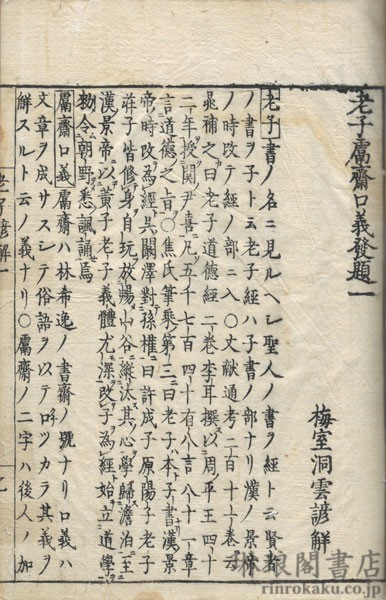 老子鬳齋口義發題一
梅室洞雲諺解
老子書ノ名ニ見ルヘシ聖人ノ書ヲ經ト云賢者
ノ書ヲ子ト云老子經ハ子書ノ部ナリ漢ノ景帝
ノ時改テ經ノ部ニ入○文献通考二百十一ノ巻云
晁補之曰老子道德經二巻李耳撰以周平王四十
二年授関尹喜凡五千七百四十有八言八十一章
言道德之旨○焦氏筆乗第三曰老子本子書漢景
帝時改為經呉闞澤對孫權曰許成子原陽子老子
莊子皆修身自玩放暢山谷縱汰其心學歸澹泊至
漢景帝以黄子老子義體尤深改子為經始立道學
勑令朝野悉諷誦焉
鬳齋口義鬳齋ハ林希逸ノ書齋ノ號ナリ口義ハ
文章ヲ成サスシテ俗語ヲ以テ口ツカラ其義ヲ
解スルト云ノ義ナリ○鬳齋ノ二字ハ後人ノ加
琳琅閣書店
rinrokaku.co.jp